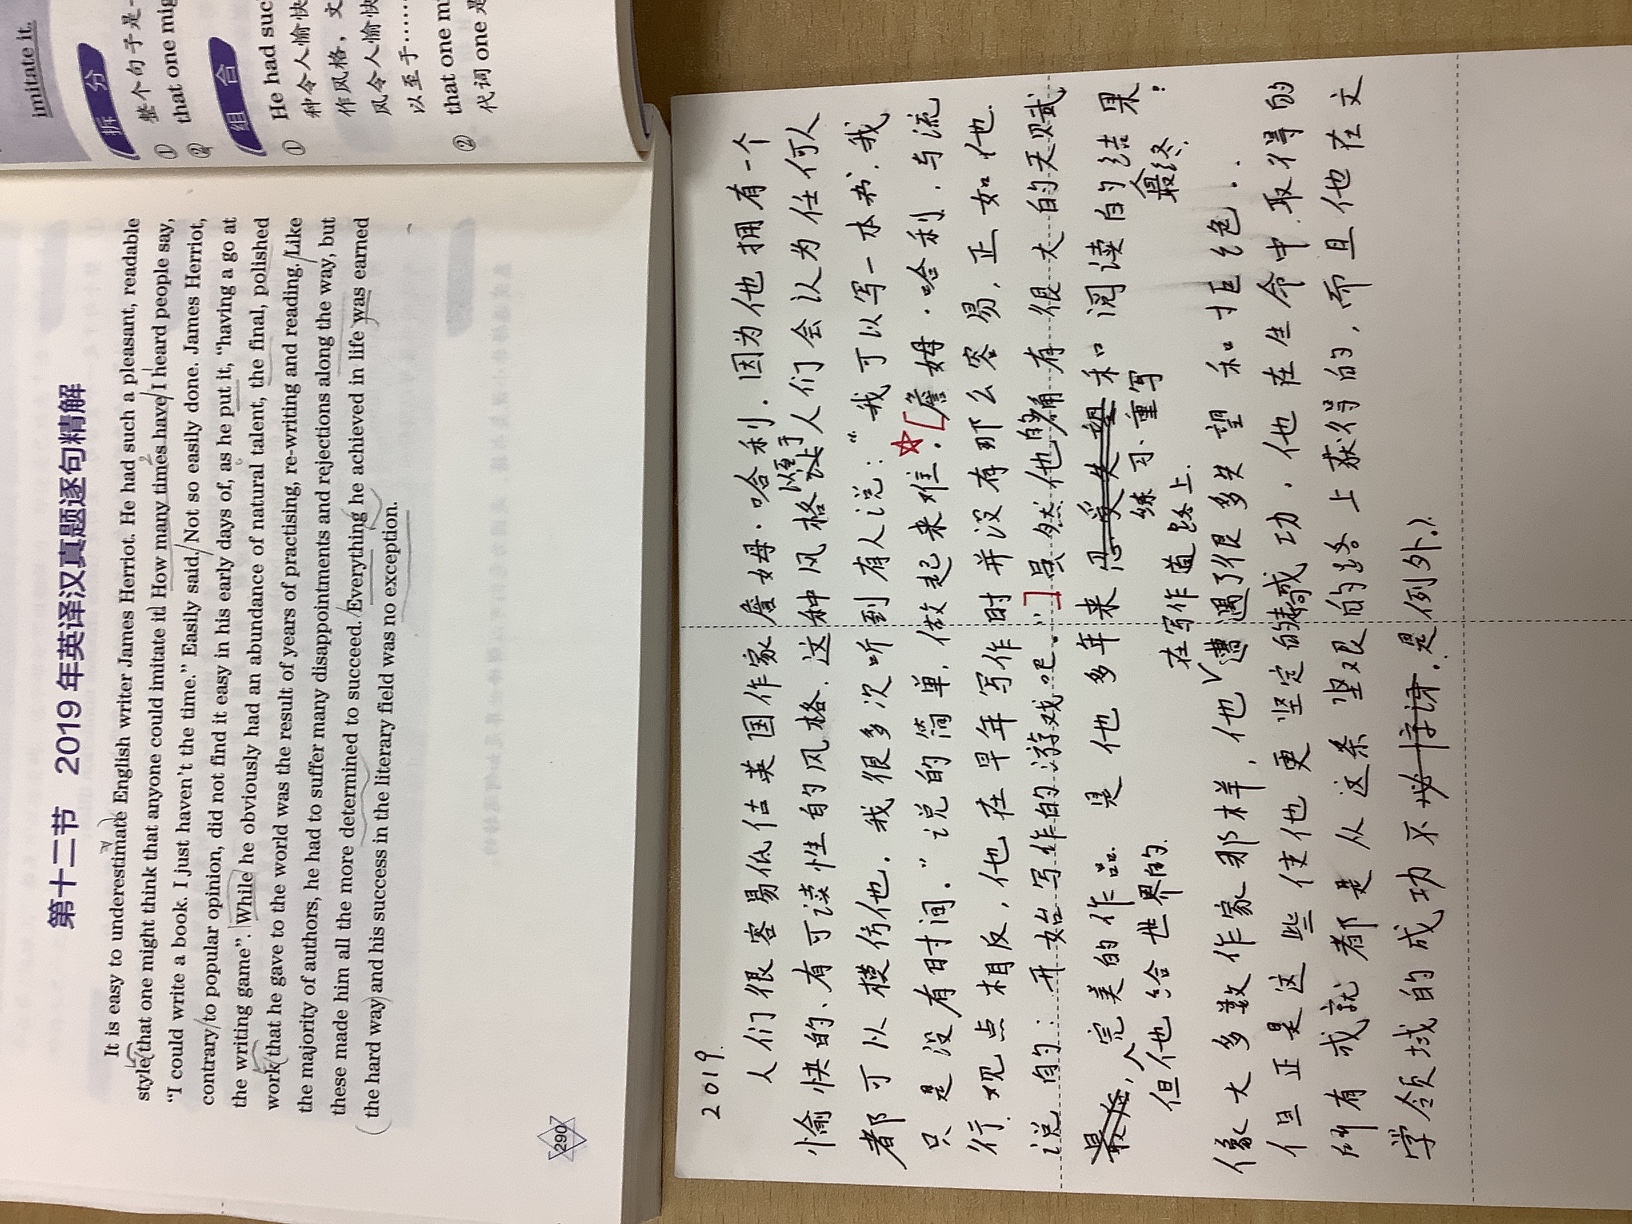 imitate it.
拆 分
整个句子是一
① that one mig
②
组 合
① He had suc
种令人愉快
作风格，文
风令人愉快
以至于……
② that one m
代词 one 是
第十二节 2019年英译汉真题逐句精解
It is easy to underestimate English writer James Herriot. He had such a pleasant, readable
style that one might think that anyone could imitate it. How many times have I heard people say,
“I could write a book. I just haven't the time.” Easily said. Not so easily done. James Herriot,
contrary to popular opinion, did not find it easy in his early days of, as he put it, “having a go at
the writing game”. While he obviously had an abundance of natural talent, the final, polished
work that he gave to the world was the result of years of practising, re-writing and reading. Like
the majority of authors, he had to suffer many disappointments and rejections along the way, but
these made him all the more determined to succeed. Everything he achieved in life was earned
the hard way and his success in the literary field was no exception.
290
2019.
人们很容易低估英国作家詹姆母·哈利.因为他拥有一个
愉快的、有可读性的风格.这种风格以至于人们会认为任何人
都可以模仿他.我很多次听到有人说:“我可以写一本书.我
只是没有时间.”说的简单,做起来难.[詹姆·哈利,与流
行观点相反,他在早年写作时并没有那么容易,正如他
说的:开始写作的游戏吧.]虽然他的确有很大的天赋
,完美的作品是他多年来 和阅读的结果
但他给世界的 练习、重写 最终
在写作道路上.
像大多数作家那样,他遭遇了很多失望和拒绝.
但正是这些使他更坚定的成功.他在生命中取得的
所有成就都是从这条坚艰的路上获得的,而且他在文
学领域的成功不是例外.